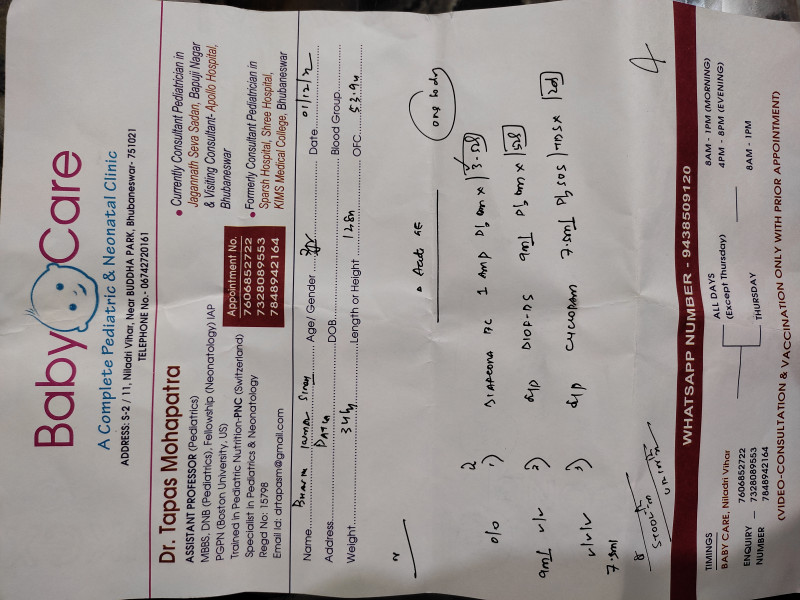 Baby Care
A Complete Pediatric & Neonatal Clinic
ADDRESS: S-2 / 11, Niladri Vihar, Near BUDDHA PARK, Bhubaneswar- 751021
TELEPHONE No:- 06742720161
Dr. Tapas Mohapatra
ASSISTANT PROFESSOR (Pediatrics)
MBBS, DNB (Pediatrics), Fellowship (Neonatology) IAP
PGPN (Boston University, US)
Trained in Pediatric Nutrition-PNC (Switzerland)
Specialist in Pediatrics & Neonatology
Regd No: 15798
Email Id: drtapasm@gmail.com
Appointment No.
7606852722
7328089553
7848942164
• Currently Consultant Pediatrician in
Jagannath Seva Sadan, Bapuji Nagar
& Visiting Consultant- Apollo Hospital,
Bhubaneswar
• Formerly Consultant Pediatrician in
Sparsh Hospital, Shree Hospital,
KIMS Medical College, Bhubaneswar
Name Age/ Gender Date 01/12/
Address DOB Blood Group
Weight 34 kg Length or Height OFC
One body
1) 1 Amp
2) syp DIOF-DS 9ml
3) syp CYCLOPAM 7.5ml SOS TDS x 2d
9ml
7.5ml
WHATSAPP NUMBER - 9438509120
TIMINGS
BABY CARE, Niladri Vihar
ENQUIRY NUMBER — 7606852722
7328089553
7848942164
ALL DAYS
(Except Thursday)
8AM - 1PM (MORNING)
4PM - 8PM (EVENING)
THURSDAY 8AM - 1PM
(VIDEO-CONSULTATION & VACCINATION ONLY WITH PRIOR APPOINTMENT)